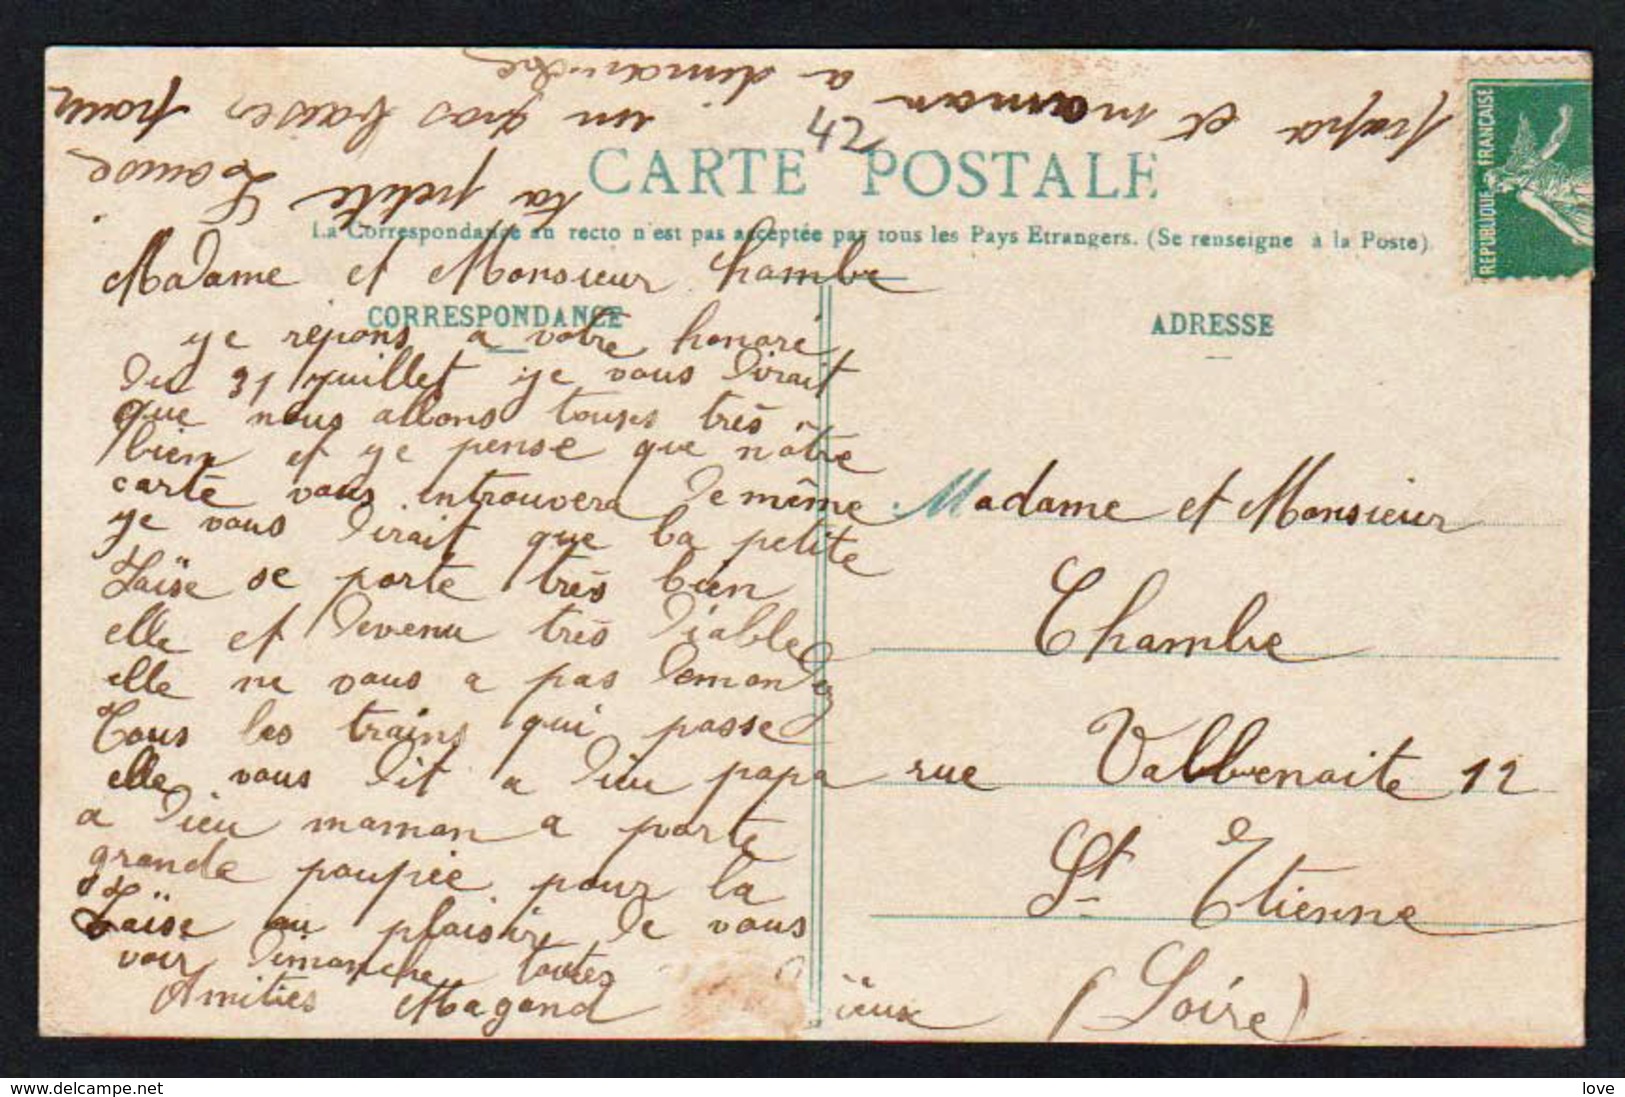 papa et maman un gros baiser pour
a dimanche
ta petite Louise
42
CARTE POSTALE
La Correspondance au recto n'est pas acceptée par tous les Pays Etrangers. (Se renseigne à la Poste)
CORRESPONDANCE
ADRESSE
REPUBLIQUE FRANÇAISE
Madame et Monsieur Chambe
ye répons a votre honoré
du 31 juillet ye vous dirait
que nous allons touses très
bien et ye pense que nôtre
carte vous introuvera de même
ye vous dirait que la petite
Laïse se porte très bien
elle et devenu très diable
elle ne vous a pas demandez
Tous les trains qui passe
elle vous dit a dieu papa
a dieu maman a porte
grande poupée pour la
Laïse au plaisir de vous
voir dimanche toutes
Amitiés Magand
Madame et Monsieur
Chambe
rue Valbenoite 12
St Etienne
(Loire)
www.delcampe.net
love